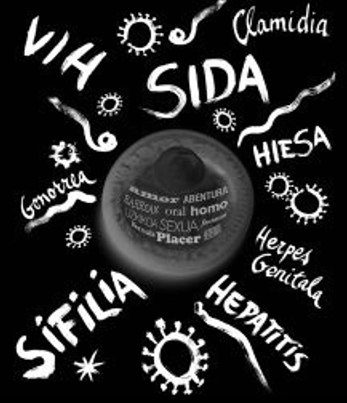 VIH
Clamidia
SIDA
HIESA
Gonorrea
amor AVENTURA
oral homo
SEXUA
Placer
Herpes
Genitala
SÍFÍLIA
HEPATITIS